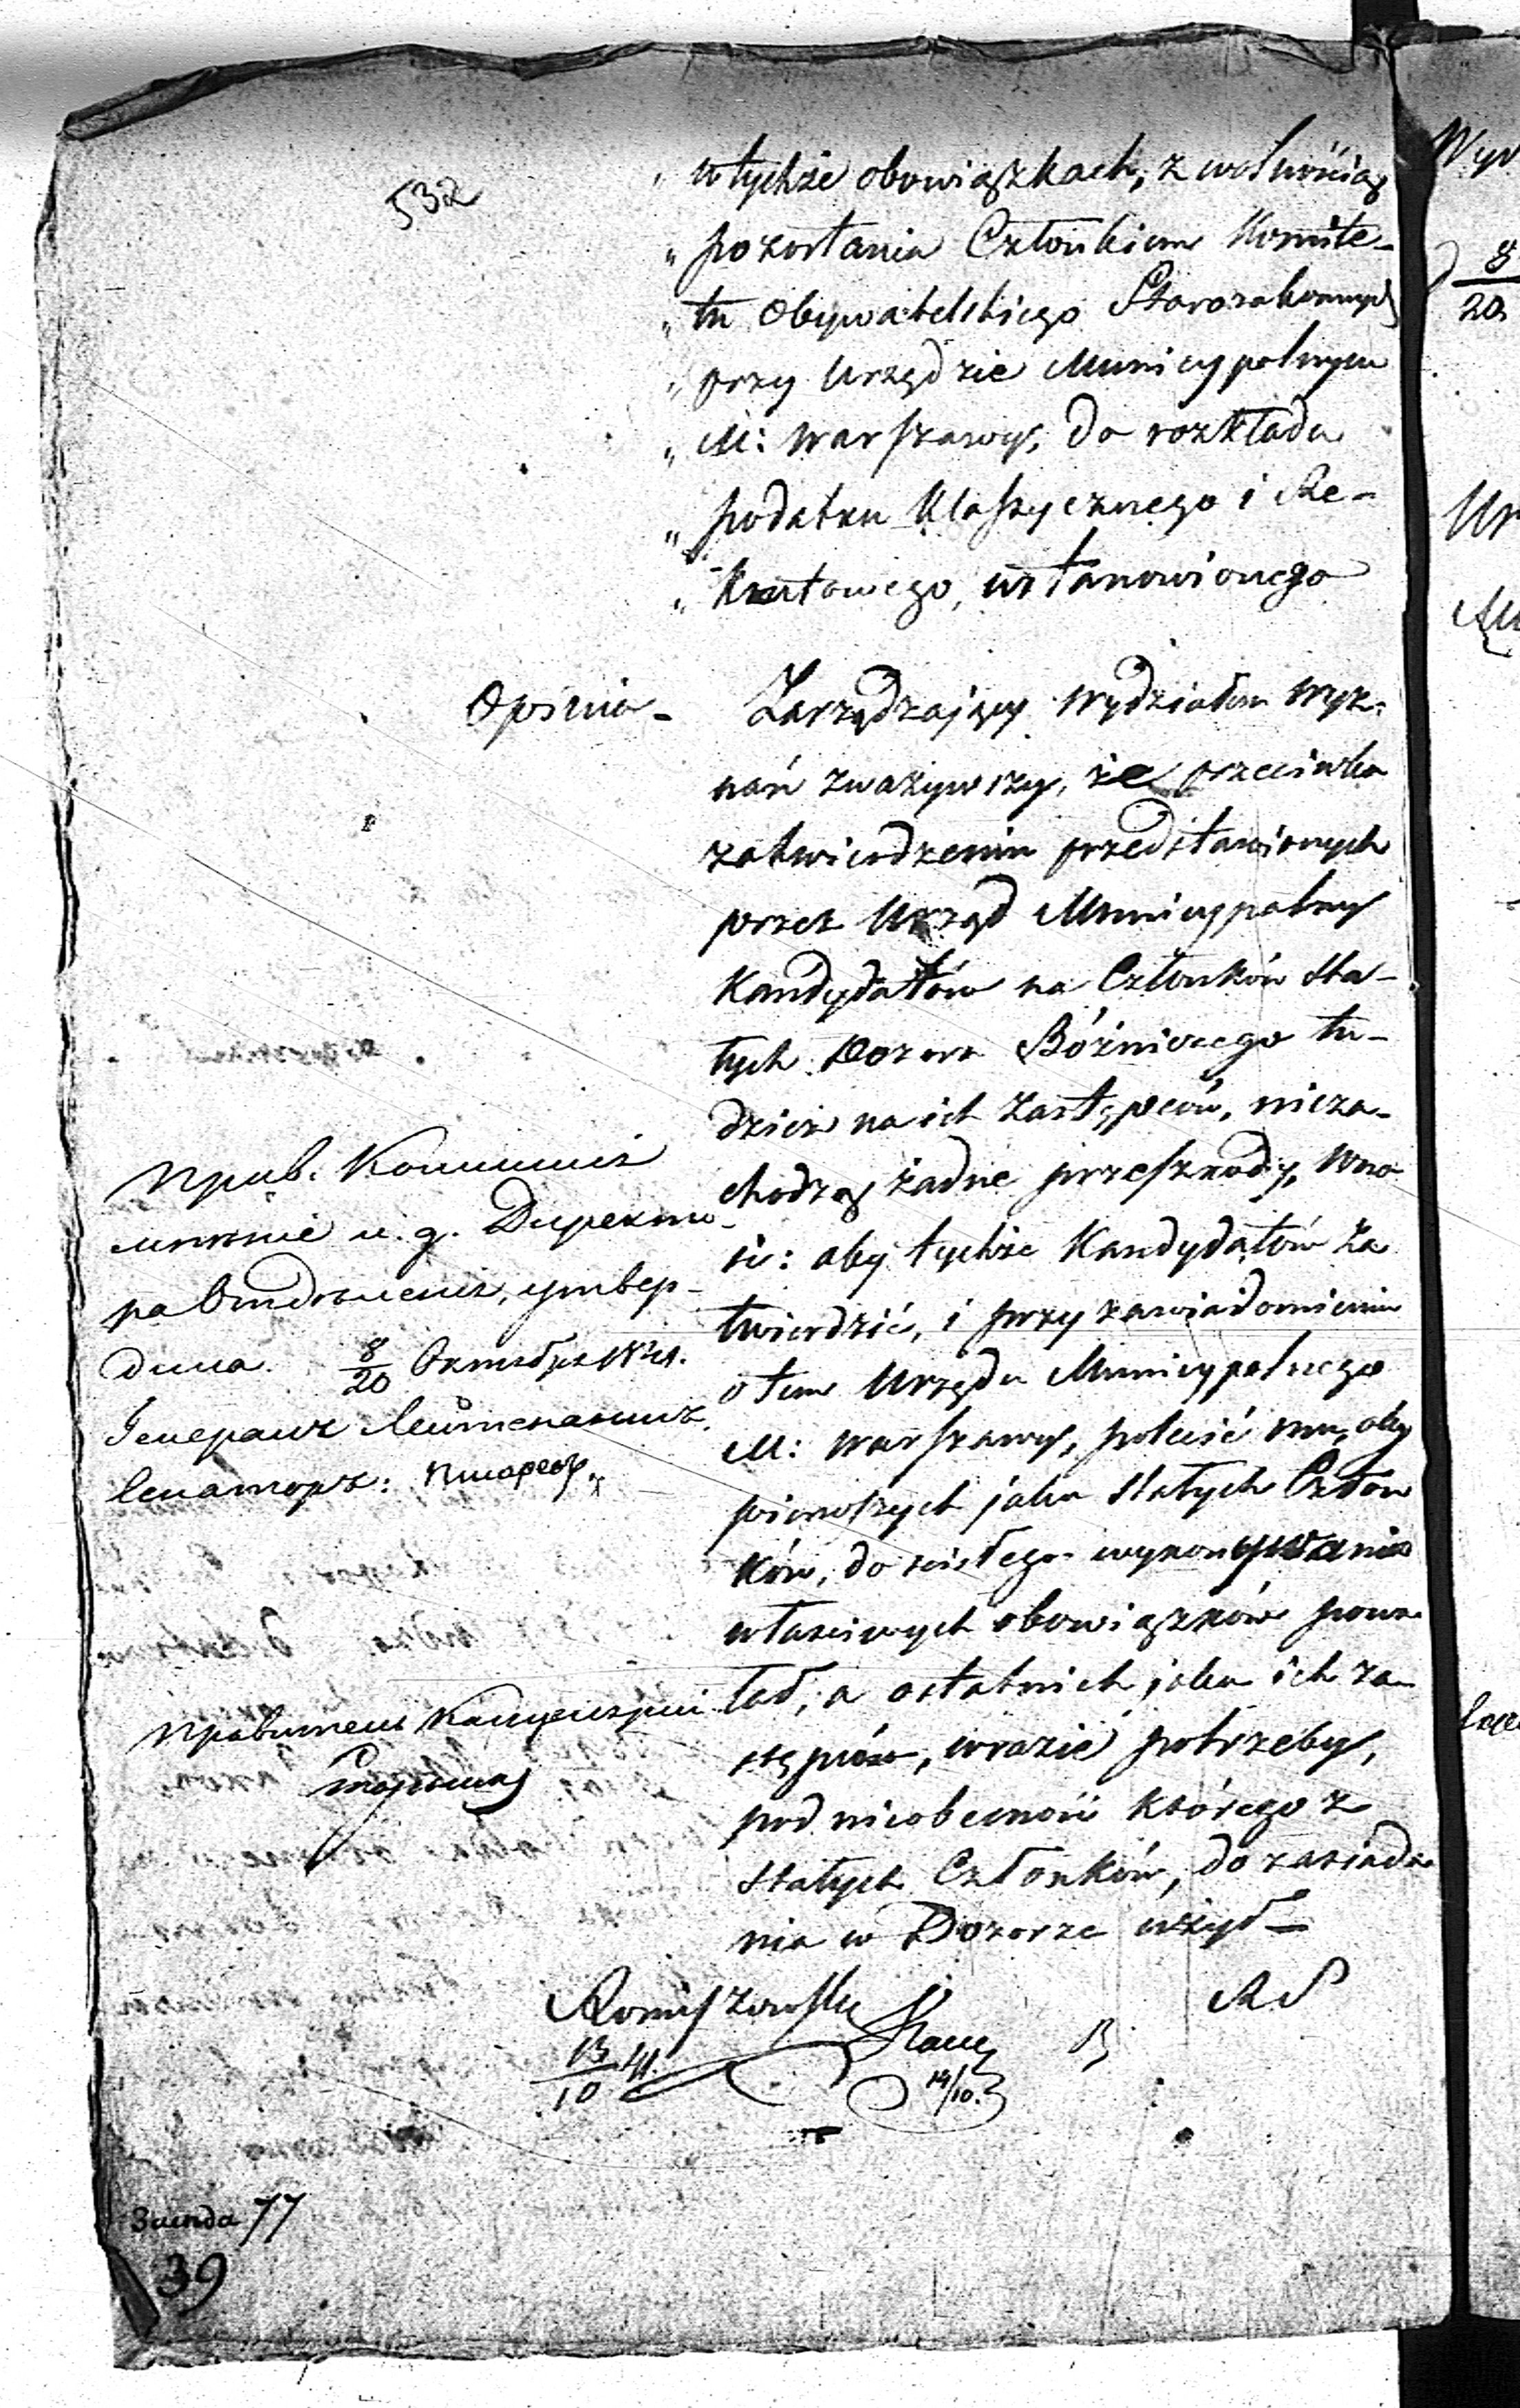 532
„ w tychże obowiązkach, z wolnością
„ pozostania Członkiem Komite-
„ tu Obywatelskiego Starozakonnych
„ przy Urzędzie Municypalnym
„ M: Warszawy, do rozkładu
„ podatku Klassycznego i Re-
„ krutowego, ustanowionego
Opinia - Zarządzający Wydziałem Wyz-
nań zważywszy, że przeciwko
zatwierdzeniu przedstawionych
przez Urząd Municypalny
Kandydatów na Członków sta-
łych Dozoru Bóżniczego tu-
dzież na ich Zastępców, nieza-
chodzą żadne przeszkody, wno
si: aby tychże Kandydatów za
twierdzić, i przy zawiadomieniu
o tem Urzędu Municypalnego
M: Warszawy, polecić mu, aby
pierwszych jako stałych Człon
ków, do ścisłego wykonywania
właściwych obowiązków powo
łał, a ostatnich jako ich za-
stępców, w razie potrzeby,
pod nieobecność którego z
stałych Członków, do zasiada
nia w Dozorze użył -
Прав. Коммисія
мнѣніе и. д. Директо-
ра Отдѣленія, утвер-
дила. 8/20 Октября 1841.
Генералъ Лейтенантъ
Сенаторъ: Писаревъ
Правитель Канцеляріи
Romiszowski
13/10 41.
14/10.
77
39
Wyz
8
20
Ur